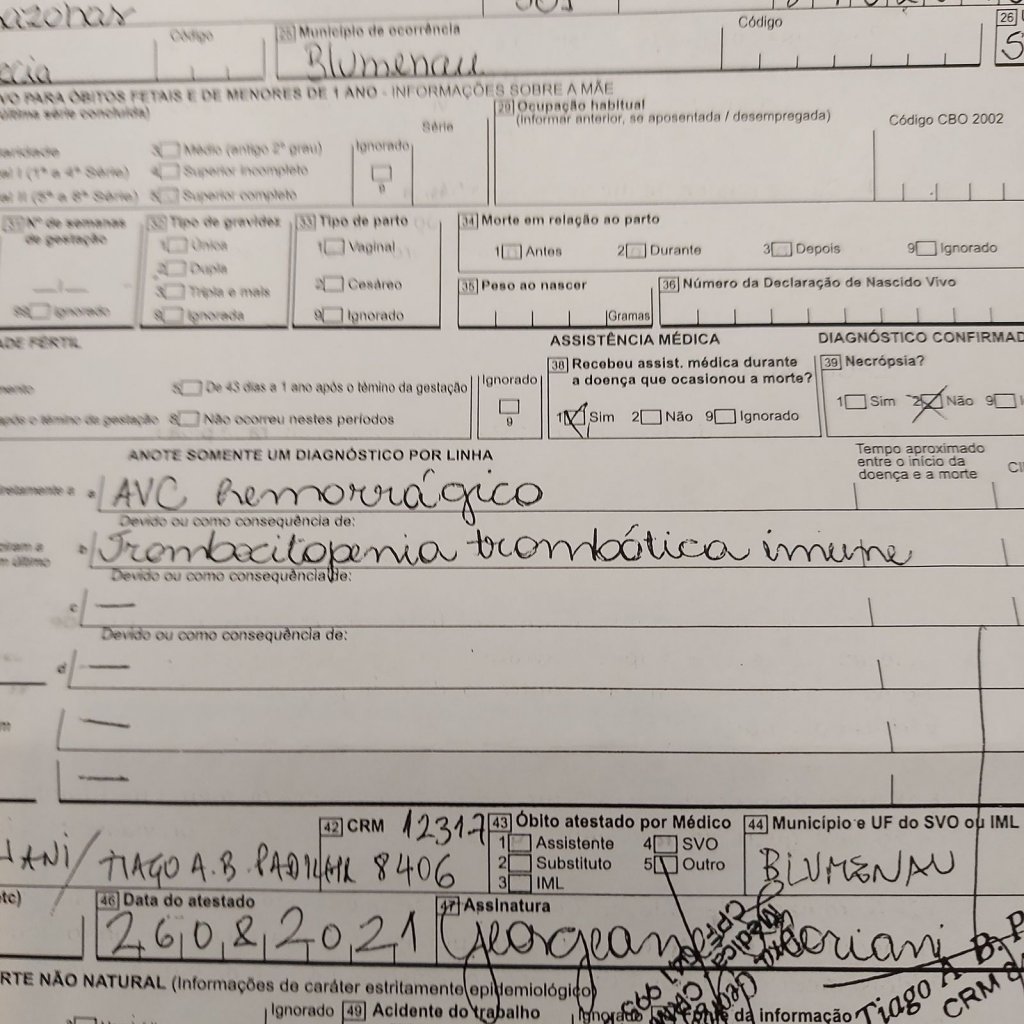 Código
25 Município de ocorrência
Blumenau
Código
26
VO PARA ÓBITOS FETAIS E DE MENORES DE 1 ANO - INFORMAÇÕES SOBRE A MÃE
última série concluída)
Série
29 Ocupação habitual
(Informar anterior, se aposentada / desempregada)
Código CBO 2002
3 Médio (antigo 2º grau)
Ignorado
al I (1ª a 4ª Série) 4 Superior incompleto
9
al II (5ª a 8ª Série) 5 Superior completo
31 Nº de semanas de gestação
99 Ignorado
32 Tipo de gravidez
1 Única
2 Dupla
3 Tripla e mais
9 Ignorada
33 Tipo de parto
1 Vaginal
2 Cesáreo
9 Ignorado
34 Morte em relação ao parto
1 Antes 2 Durante 3 Depois 9 Ignorado
35 Peso ao nascer
Gramas
36 Número da Declaração de Nascido Vivo
ADE FÉRTIL
ASSISTÊNCIA MÉDICA
DIAGNÓSTICO CONFIRMAD
5 De 43 dias a 1 ano após o témino da gestação
após o témino da gestação 8 Não ocorreu nestes períodos
Ignorado
9
38 Recebeu assist. médica durante
a doença que ocasionou a morte?
1 Sim 2 Não 9 Ignorado
39 Necrópsia?
1 Sim 2 Não 9
ANOTE SOMENTE UM DIAGNÓSTICO POR LINHA
Tempo aproximado
entre o início da
doença e a morte
CI
a AVC hemorrágico
Devido ou como consequência de:
b Trombocitopenia trombótica imune
Devido ou como consequência de:
c —
Devido ou como consequência de:
d —
—
—
IANI/ TIAGO A.B.
42 CRM 12317
8406
43 Óbito atestado por Médico
1 Assistente 4 SVO
2 Substituto 5 Outro
3 IML
44 Município e UF do SVO ou IML
BLUMENAU
etc)
46 Data do atestado
26082021
47 Assinatura
ORTE NÃO NATURAL (Informações de caráter estritamente epidemiológico)
Ignorado
49 Acidente do trabalho
Ignorado
da informação
Tiago A B. P
CRM